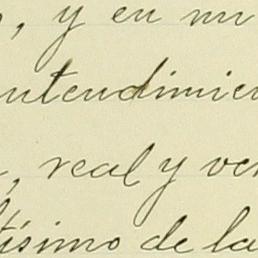 , y en mi
ntendimien
, real y ver
tísimo de la